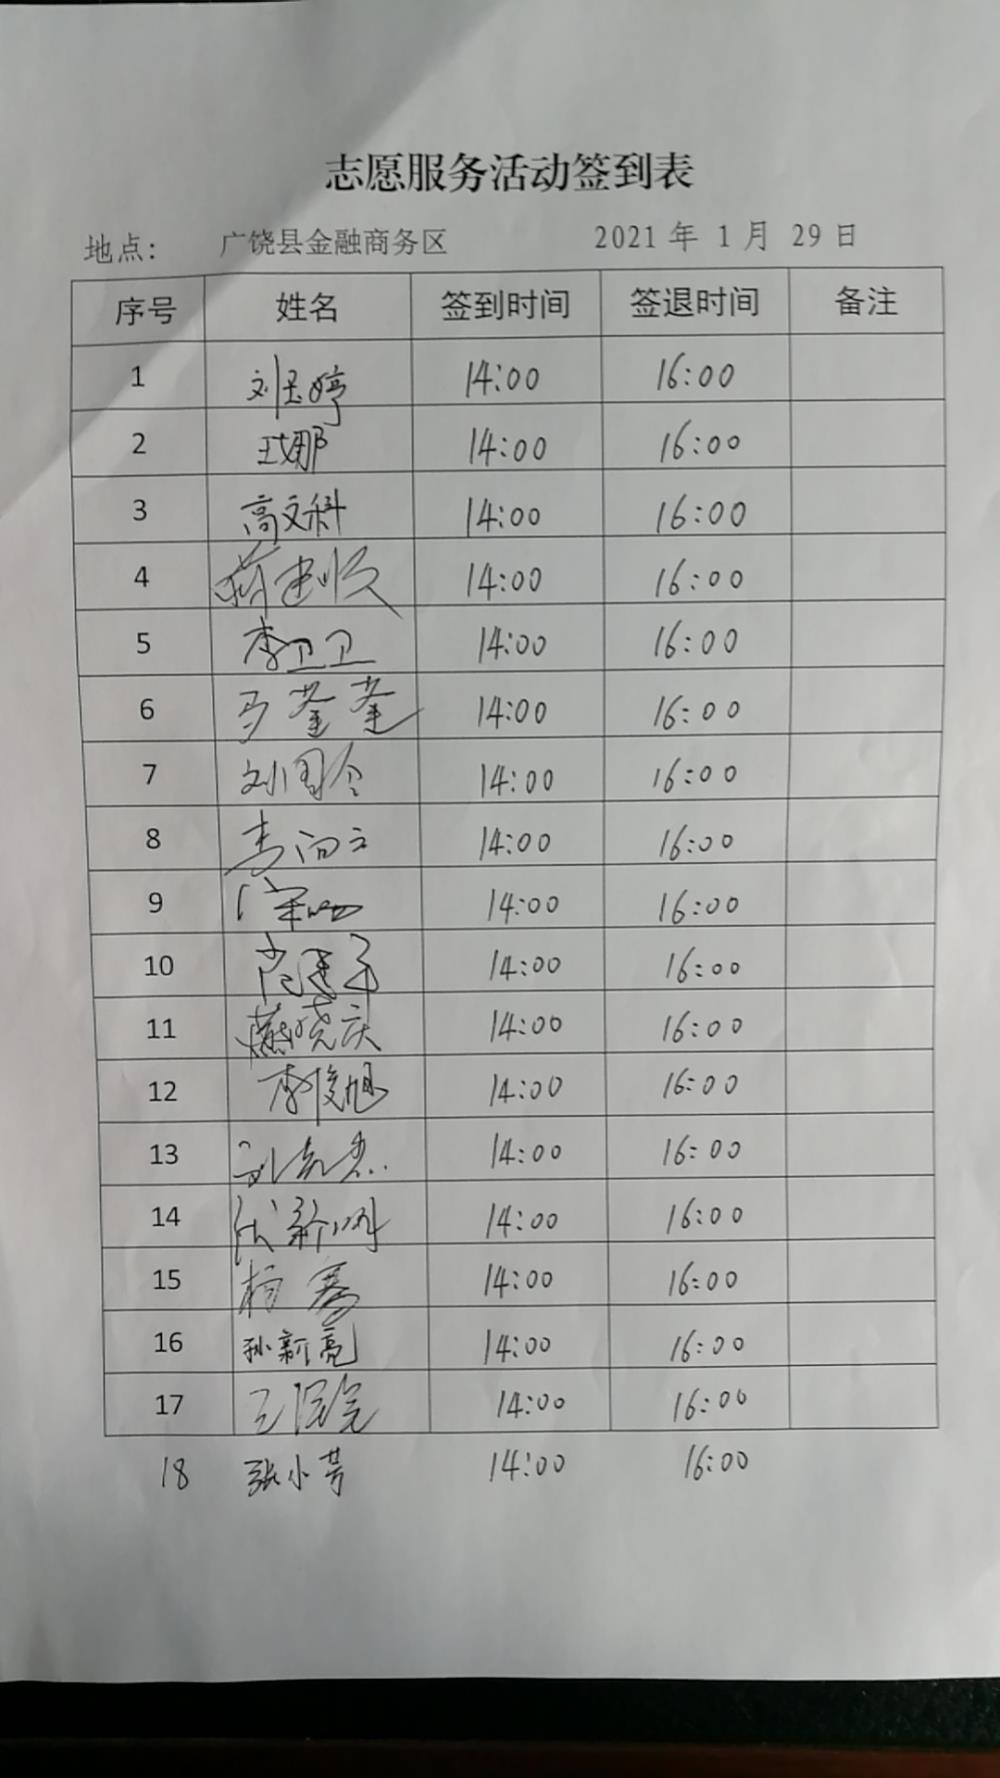 志愿服务活动签到表
地点： 广饶县金融商务区 2021 年 1 月 29 日
序号 姓名 签到时间 签退时间 备注
1 刘玉婷 14:00 16:00
2 王娜 14:00 16:00
3 高文科 14:00 16:00
4 蒋建收 14:00 16:00
5 李卫卫 14:00 16:00
6 马荃荃 14:00 16:00
7 刘国令 14:00 16:00
8 李向云 14:00 16:00
9 14:00 16:00
10 14:00 16:00
11 燕晓庆 14:00 16:00
12 李俊旭 14:00 16:00
13 14:00 16:00
14 14:00 16:00
15 杨骞 14:00 16:00
16 孙新亮 14:00 16:00
17 14:00 16:00
18 张小芳 14:00 16:00